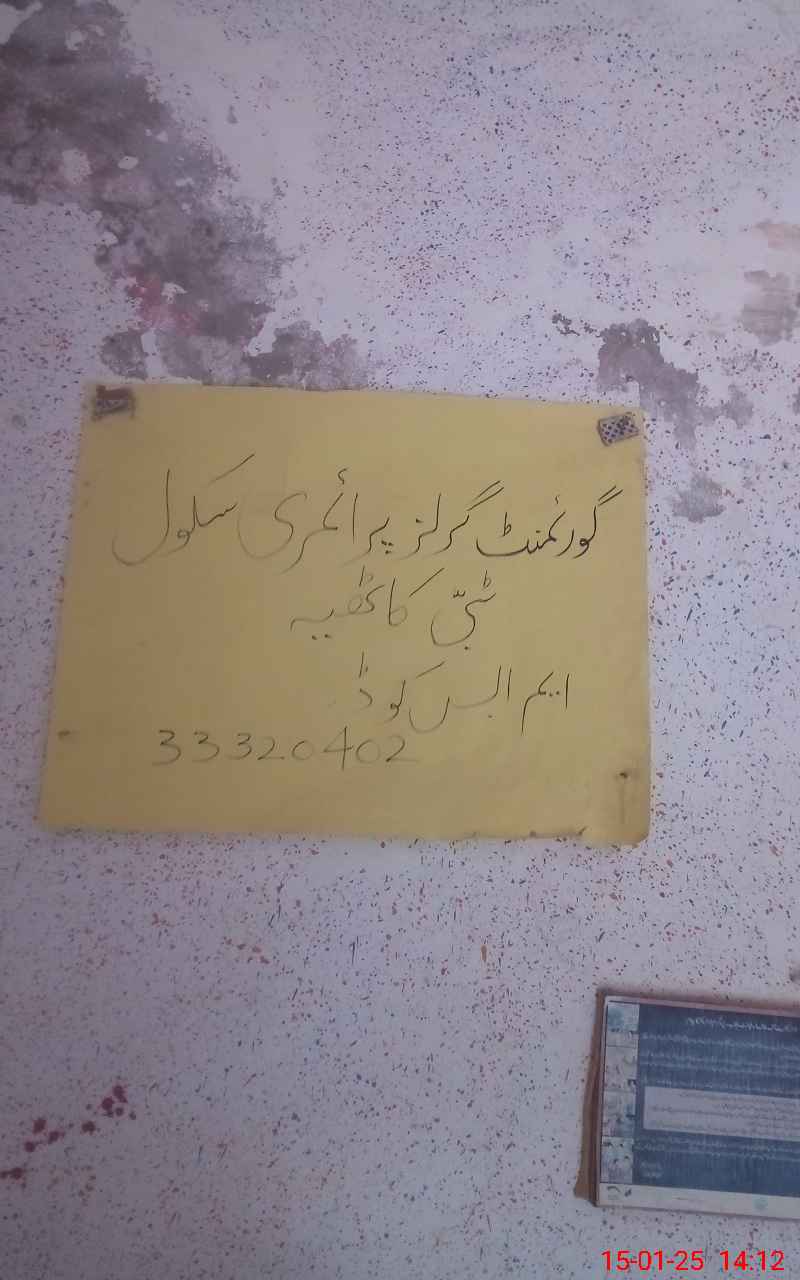 گورئمنٹ گرلز پرائمری سکول
ٹبّی کاٹھیہ
ایم ایس کوڈ
33320402
15-01-25 14:12